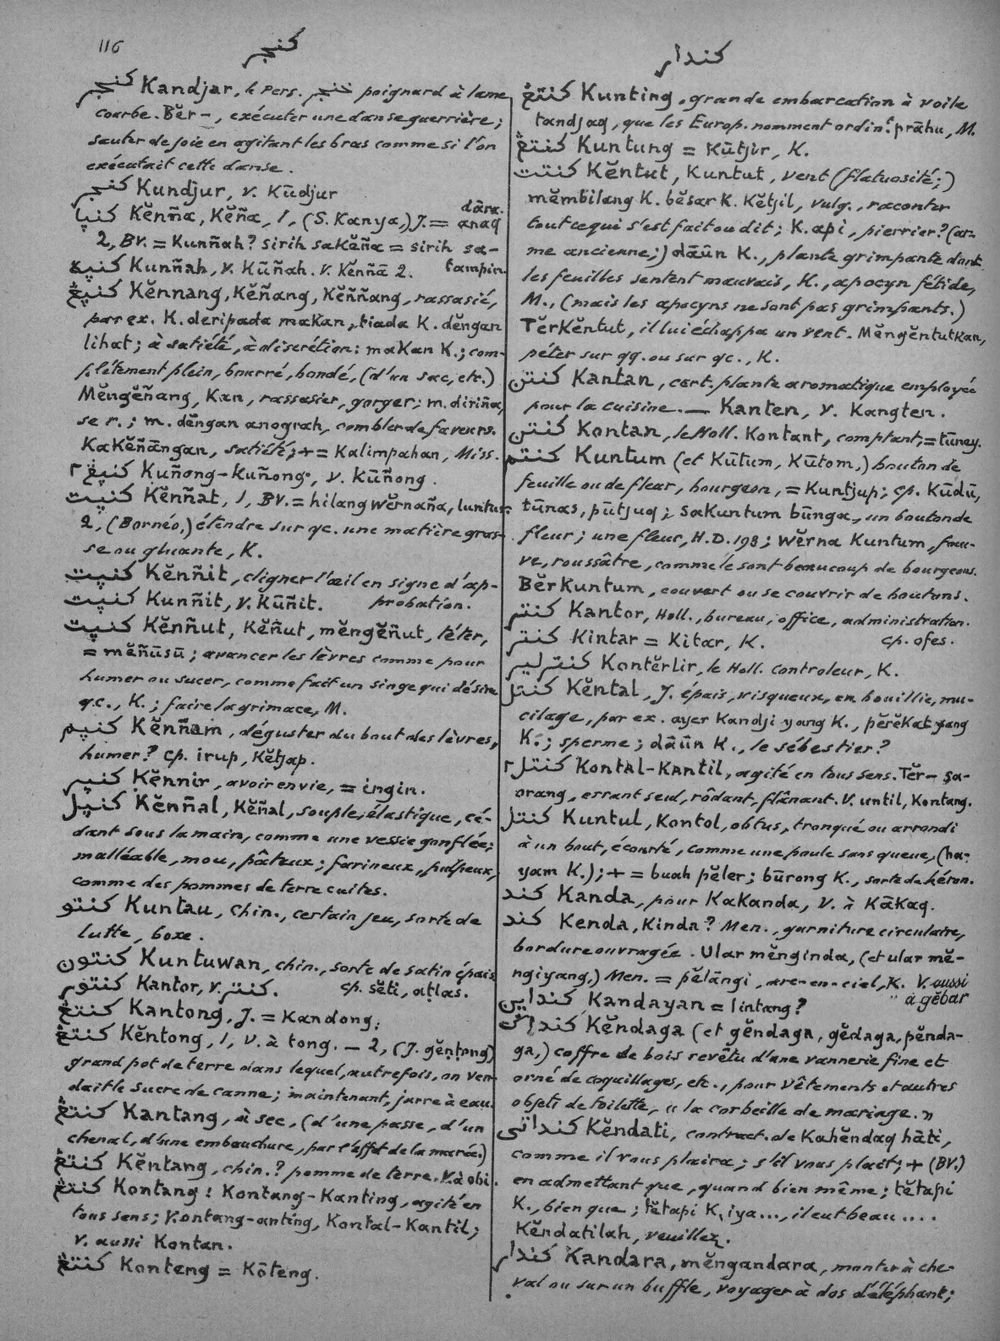 116
كنجر
كندار
كنجر Kandjar, le Pers. خنجر poignard à lame
courbe. Bĕr –, exécuter une danse guerrière;
sauter de joie en agitant les bras comme si l'on
exécutait cette danse.
كنجر Kundjur, v. Kūdjur
كنيا Kĕnña, Kĕña, 1, (S. Kanya,) J. = anaq dāra.
2, BV. = Kunñah? sirih saKĕña = sirih sa-
tampin
كنيه Kunñah, v. Kūñah. v. Kĕnñā 2.
كنيڠ Kĕnnang, Kĕñang, Kĕññang, rassasié,
par ex. K. deripada makan, tiada K. dĕngan
lihat; à satiété, à discrétion: makan K.; com-
plètement plein, bourré, bondé, (d'un sac, etc.)
Mĕngĕñang, Kan, rassasier, gorger; m. diriña,
se r.; m. dĕngan anograh, combler de faveurs.
KaKĕñāngan, satiété; + = Kalimpahan, Miss.
كنيڠ٢ Kuñong-Kuñong, v. Kūñong.
كنيت Kĕnñat, 1, BV. = hilang wĕrnaña, luntur.
2, (Bornéo,) étendre sur qc. une matière gras-
se ou gluante, K.
كنيت Kĕnñit, cligner l'œil en signe d'ap-
probation.
كنيت Kunñit, v. Kūñit.
كنيت Kĕnñut, Kĕñut, mĕngĕñut, téter,
= mĕñūsū; avancer les lèvres comme pour
humer ou sucer, comme fait un singe qui désire
qc., K.; faire la grimace, M.
كنيم Kĕnñam, déguster du bout des lèvres,
humer? cp. irup, Kĕtjap.
كنير Kĕnnir, avoir envie, = ingin.
كنيل Kĕnñal, Kĕñal, souple, élastique, cé-
dant sous la main, comme une vessie gonflée;
malléable, mou, pâteux; farineux, pulpeux,
comme des pommes de terre cuites.
كنتو Kuntau, chin., certain jeu, sorte de
lutte, boxe.
كنتون Kuntuwan, chin., sorte de satin épais
cp. sĕti, aṭlas.
كنتور Kantor, v. كنتر.
كنتڠ Kantong, J. = Kandong;
كنتڠ Kĕntong, 1, v. à tong. — 2, (J. gĕnṭong)
grand pot de terre dans lequel, autrefois, on ven-
dait le sucre de canne; maintenant, jarre à eau.
كنتڠ Kantang, à sec, (d'une passe, d'un
chenal, d'une embouchure, par l'effet de la marée.)
كنتڠ Kĕntang, chin.? pomme de terre. v. à obi.
كنتڠ Kontang: Kontang-Kanting, agité en
tous sens; Kontang-anting, Kontal-Kantil;
v. aussi Kontan.
كنتڠ Konteng = Kōteng.
كنتڠ Kunting, grande embarcation à voile
tandjaq, que les Europ. nomment ordin.t prāhu, M.
كنتڠ Kuntung = Kūtjir, K.
كنتت Kĕntut, Kuntut, vent (flatuosité;)
mĕmbilang K. bĕsar K. Kĕtjil, vulg., raconter
tout ce qui s'est fait ou dit; K. api, pierrier? (ar-
me ancienne;) dāūn K., plante grimpante dont
les feuilles sentent mauvais, K., apocyn fétide,
M., (mais les apocyns ne sont pas grimpants.)
TĕrKĕntut, il lui échappa un vent. MĕngĕntutKan,
péter sur qq. ou sur qc., K.
كنتن Kantan, cert. plante aromatique employée
pour la cuisine. — Kanten, v. Kangten.
كنتن Kontan, le Holl. Kontant, comptant, = tūney.
كنتم Kuntum (et Kūtum, Kūtom,) bouton de
feuille ou de fleur, bourgeon, = Kuntjup; cp. Kūdū,
tūnas, pūtjuq; saKuntum būnga, un bouton de
fleur; une fleur, H.D. 198; wĕrna Kuntum, fau-
ve, roussâtre, comme le sont beaucoup de bourgeons.
BĕrKuntum, couvert ou se couvrir de boutons.
كنتر Kantor, Holl., bureau, office, administration.
cp. ofes.
كنتر Kintar = Kitar, K.
كنترلير Kontĕrlir, le Holl. controleur, K.
كنتل Kĕntal, J. épais, visqueux, en bouillie, mu-
cilage, par ex. ayer Kandji yang K., pĕrĕKat yang
K.; sperme; dāūn K., le sébestier?
كنتل٢ Kontal-Kantil, agité en tous sens. Tĕr– sa-
orang, errant seul, rôdant, flânant. v. until, Kontang.
كنتل Kuntul, Kontol, obtus, tronqué ou arrondi
à un bout, écourté, comme une poule sans queue, (ha-
yam K.); + = buah pĕler; būrong K., sorte de héron.
كند Kanda, pour KaKanda, v. à KāKaq.
كند Kenda, Kinda? Men., garniture circulaire,
bordure ouvragée. Ular mĕnginda, (et ular mĕ-
ngiyang,) Men. = pĕlāngi, arc-en-ciel, K. v. aussi
" à gĕbar
كنداين Kandayan = lintang?
كنداݢ Kĕndaga (et gĕndaga, gĕdaga, pĕnda-
ga,) coffre de bois revêtu d'une vannerie fine et
orné de coquillages, etc., pour vêtements et autres
objets de toilette, « la corbeille de mariage. »
كنداتي Kĕndati, contract. de Kahĕndaq hāti,
comme il vous plaira; s'il vous plaît; + (BV.)
en admettant que, quand bien même; tĕtapi
K., bien que; tĕtapi K. iya..., il eut beau....
Kĕndatilah, veuillez.
كندار Kandara, mĕngandara, monter à che-
val ou sur un buffle, voyager à dos d'éléphant;